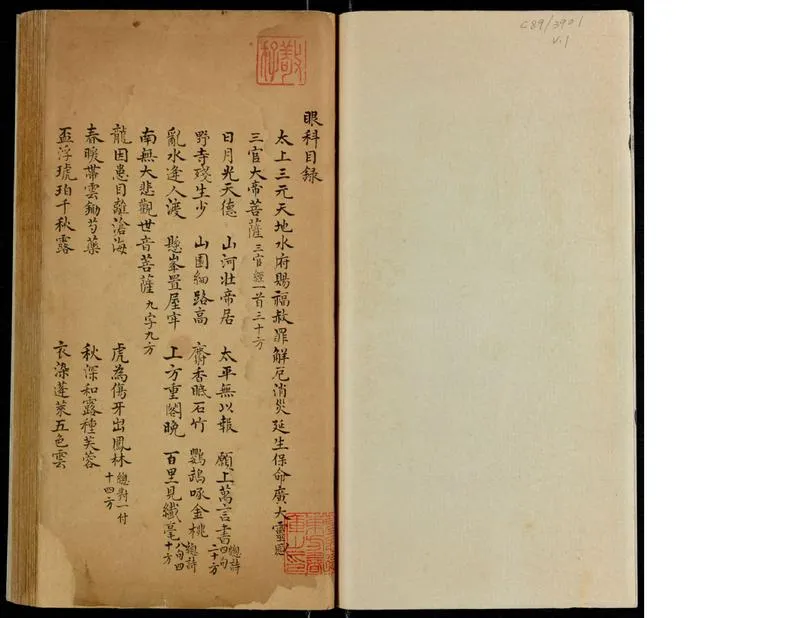 C89/3901
V.1
眼科目錄
太上三元天地水府賜福赦罪解厄消災延生保命廣大靈恩
三官大帝菩薩 三官經一首三十方
日月光天德 山河壯帝居 太平無以報 願上萬言書 總詩四句二十方
野寺殘生少 山園細路高 麝香眠石竹 鸚鵡啄金桃
亂水逢人渡 懸峯置屋牢 上方重閣晚 百里見纖毫 總詩八句四十方
南無大悲觀世音菩薩 九字九方
龍因患目離滄海 虎為傷牙出鳳林 總對一付十四方
春暖帶雲鋤芍藥 秋深和露種芙蓉
盃浮琥珀千秋露 衣染蓬萊五色雲